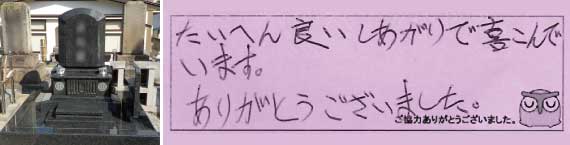 たいへん良いしあがりで喜こんで
います。
ありがとうございました。
ご協力ありがとうございました。